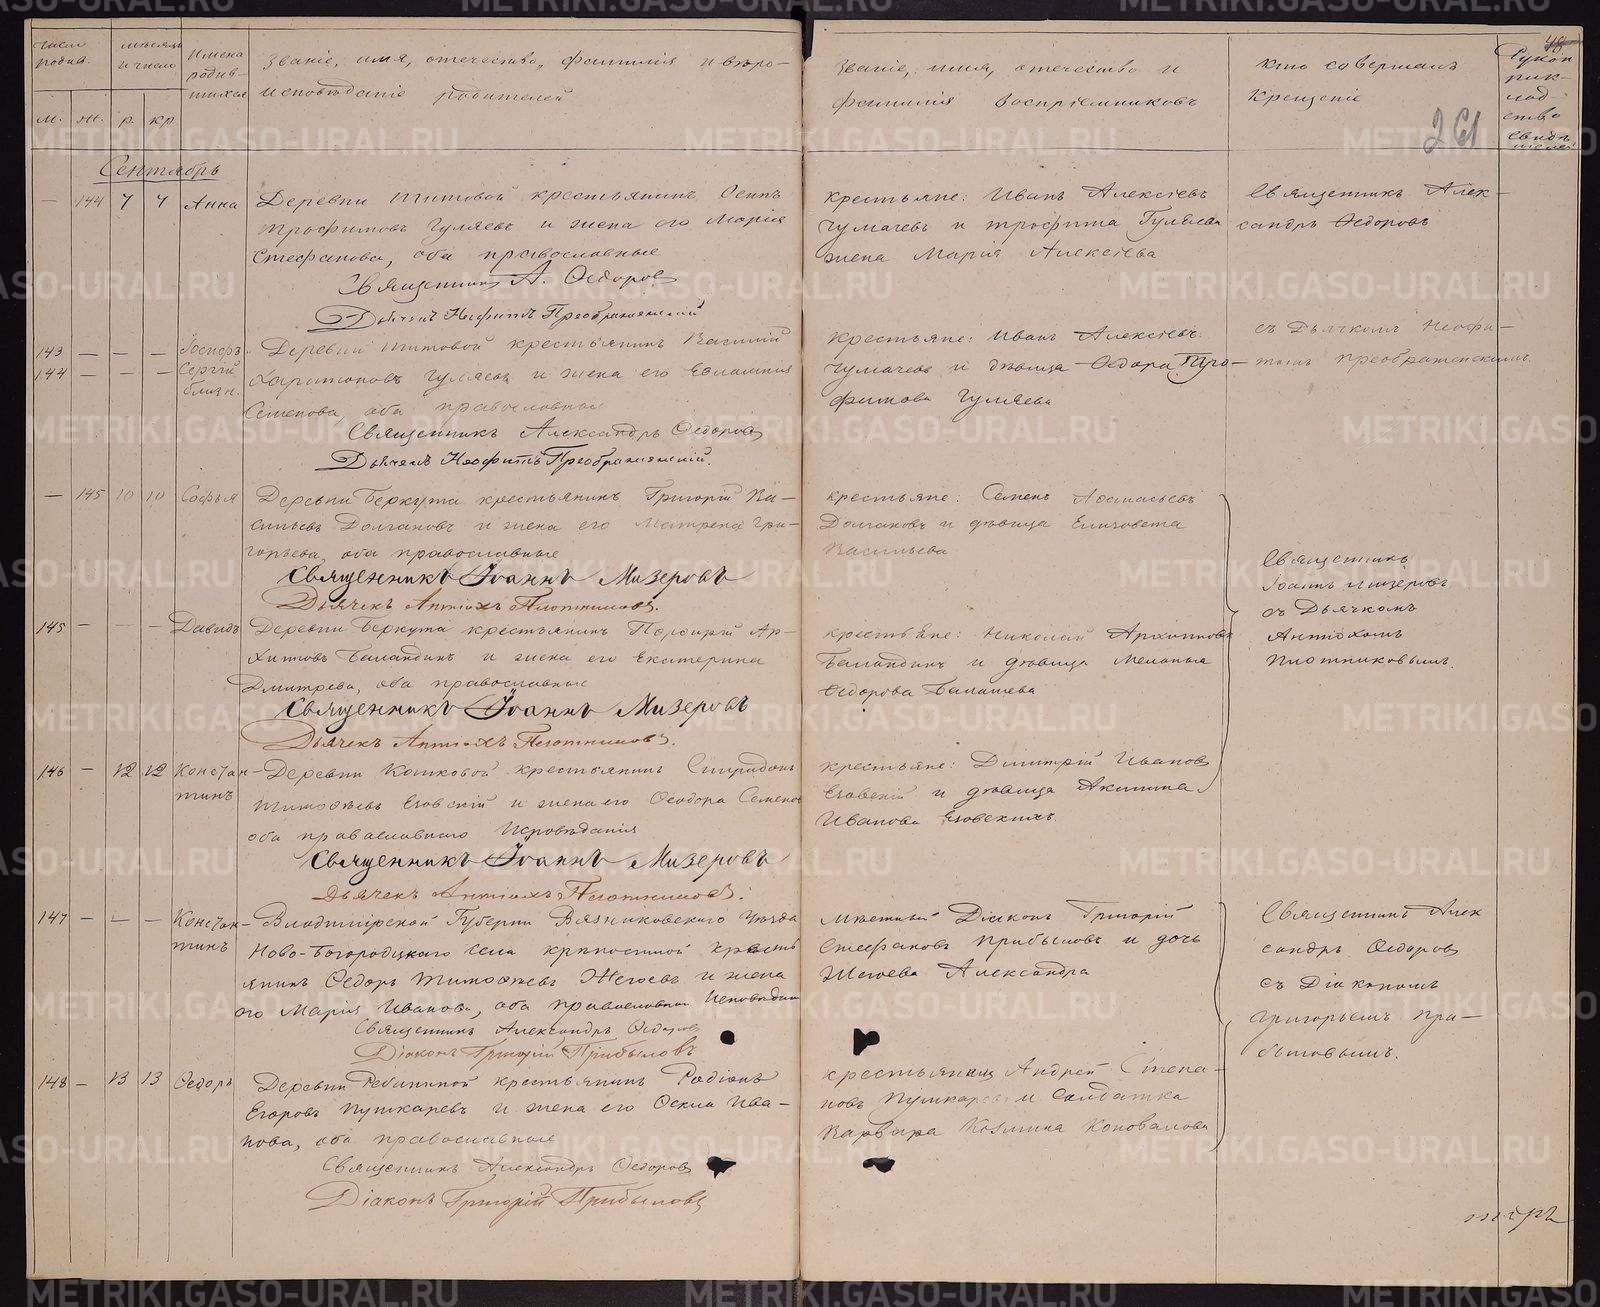 Число родив.
мѣсяцъ и число
Имена родив-шихся
Званіе, имя, отечество, фамилія и вѣро-
исповѣданіе родителей
м. ж. р. кр.
Званіе, имя, отечество и
фамилія воспріемниковъ
Кто совершалъ
крещеніе
48
261
Рукоприкладство свидѣтелей
Сентябрь
— 144 7 7 Анна
Деревни Титовой крестьянинъ
Трофимовъ Гуляевъ и жена его Марія
Стефанова, оба православные
Священникъ А. Ѳедоровъ
Дьячекъ Неофитъ Преображенскій
крестьяне: Иванъ Алексіевъ
Чумачевъ и Трофима Гуляева
жена Марія Алексіева
Священникъ Алек-
сандръ Ѳедоровъ
143 — — — Іосифъ
144 — — — Сергій
близн.
Деревни Титовой крестьянинъ Василій
Харитоновъ Гуляевъ и жена его Евлампия
Семенова, оба православные
Священникъ Александръ Ѳедоровъ
Дьячекъ Неофитъ Преображенскій.
крестьяне: Иванъ Алексіевъ
Чумачевъ и дѣвица Ѳедора Тро-
фимова Гуляева
съ Дьячкомъ Неофи-
томъ Преображенскимъ.
— 145 10 10 Софья
Деревни Беркута крестьянинъ Григорій Ва-
сильевъ Долгановъ и жена его Матрена Гри-
горьева, оба православные
Священникъ Іоаннъ Мизеровъ
Дьячекъ Антіохъ Плотниковъ.
крестьяне: Семенъ Аѳанасьевъ
Долгановъ и дѣвица Елизавета
Васильева
Священникъ
Іоаннъ Мизеровъ
съ Дьячкомъ
Антіохомъ
Плотниковымъ.
145 — — — Давидъ
Деревни Беркута крестьянинъ Порфирій Ар-
хиповъ Баландинъ и жена его Екатерина
Дмитрева, оба православные
Священникъ Іоаннъ Мизеровъ
Дьячекъ Антіохъ Плотниковъ.
крестьяне: Николай Архиповъ
Баландинъ и дѣвица Меланья
Ѳедорова Балашева
146 — 12 12 Констан-
тинъ
Деревни Кошковой крестьянинъ Спиридонъ
Тимоѳеевъ Езовскій и жена его Ѳеодора Семенов
оба православнаго Исповѣданія
Священникъ Іоаннъ Мизеровъ
Дьячекъ Антіохъ Плотниковъ.
крестьяне: Дмитрій Ивановъ
Езовскій и дѣвица Акилина
Иванова Езовскихъ.
147 — — — Констан-
тинъ
Владимірской Губерніи Вязниковскаго Уѣзда
Ново-Богородицкаго села крѣпостной кресть
янинъ Ѳедоръ Тимоѳеевъ Жегоевъ и жена
его Марія Иванова, оба православнаго Исповѣданія
Священникъ Александръ Ѳедоровъ
Діаконъ Григорій Прибыловъ
мѣстный Діаконъ Григорій
Стефановъ Прибыловъ и дочь
Александра
Священникъ Алек
сандръ Ѳедоровъ
съ Діакономъ
Григорьемъ При-
быловымъ.
148 — 13 13 Ѳедоръ
Деревни Ребининой крестьянинъ Родіонъ
Егоровъ Пушкаревъ и жена его Ѳекла Ива-
нова, оба православные
Священникъ Александръ Ѳедоровъ
Діаконъ Григорій Прибыловъ
крестьянинъ Андрей Степа-
новъ Пушкаревъ и солдатка
Варвара Козмина Коновалова
METRIKI.GASO-URAL.RU